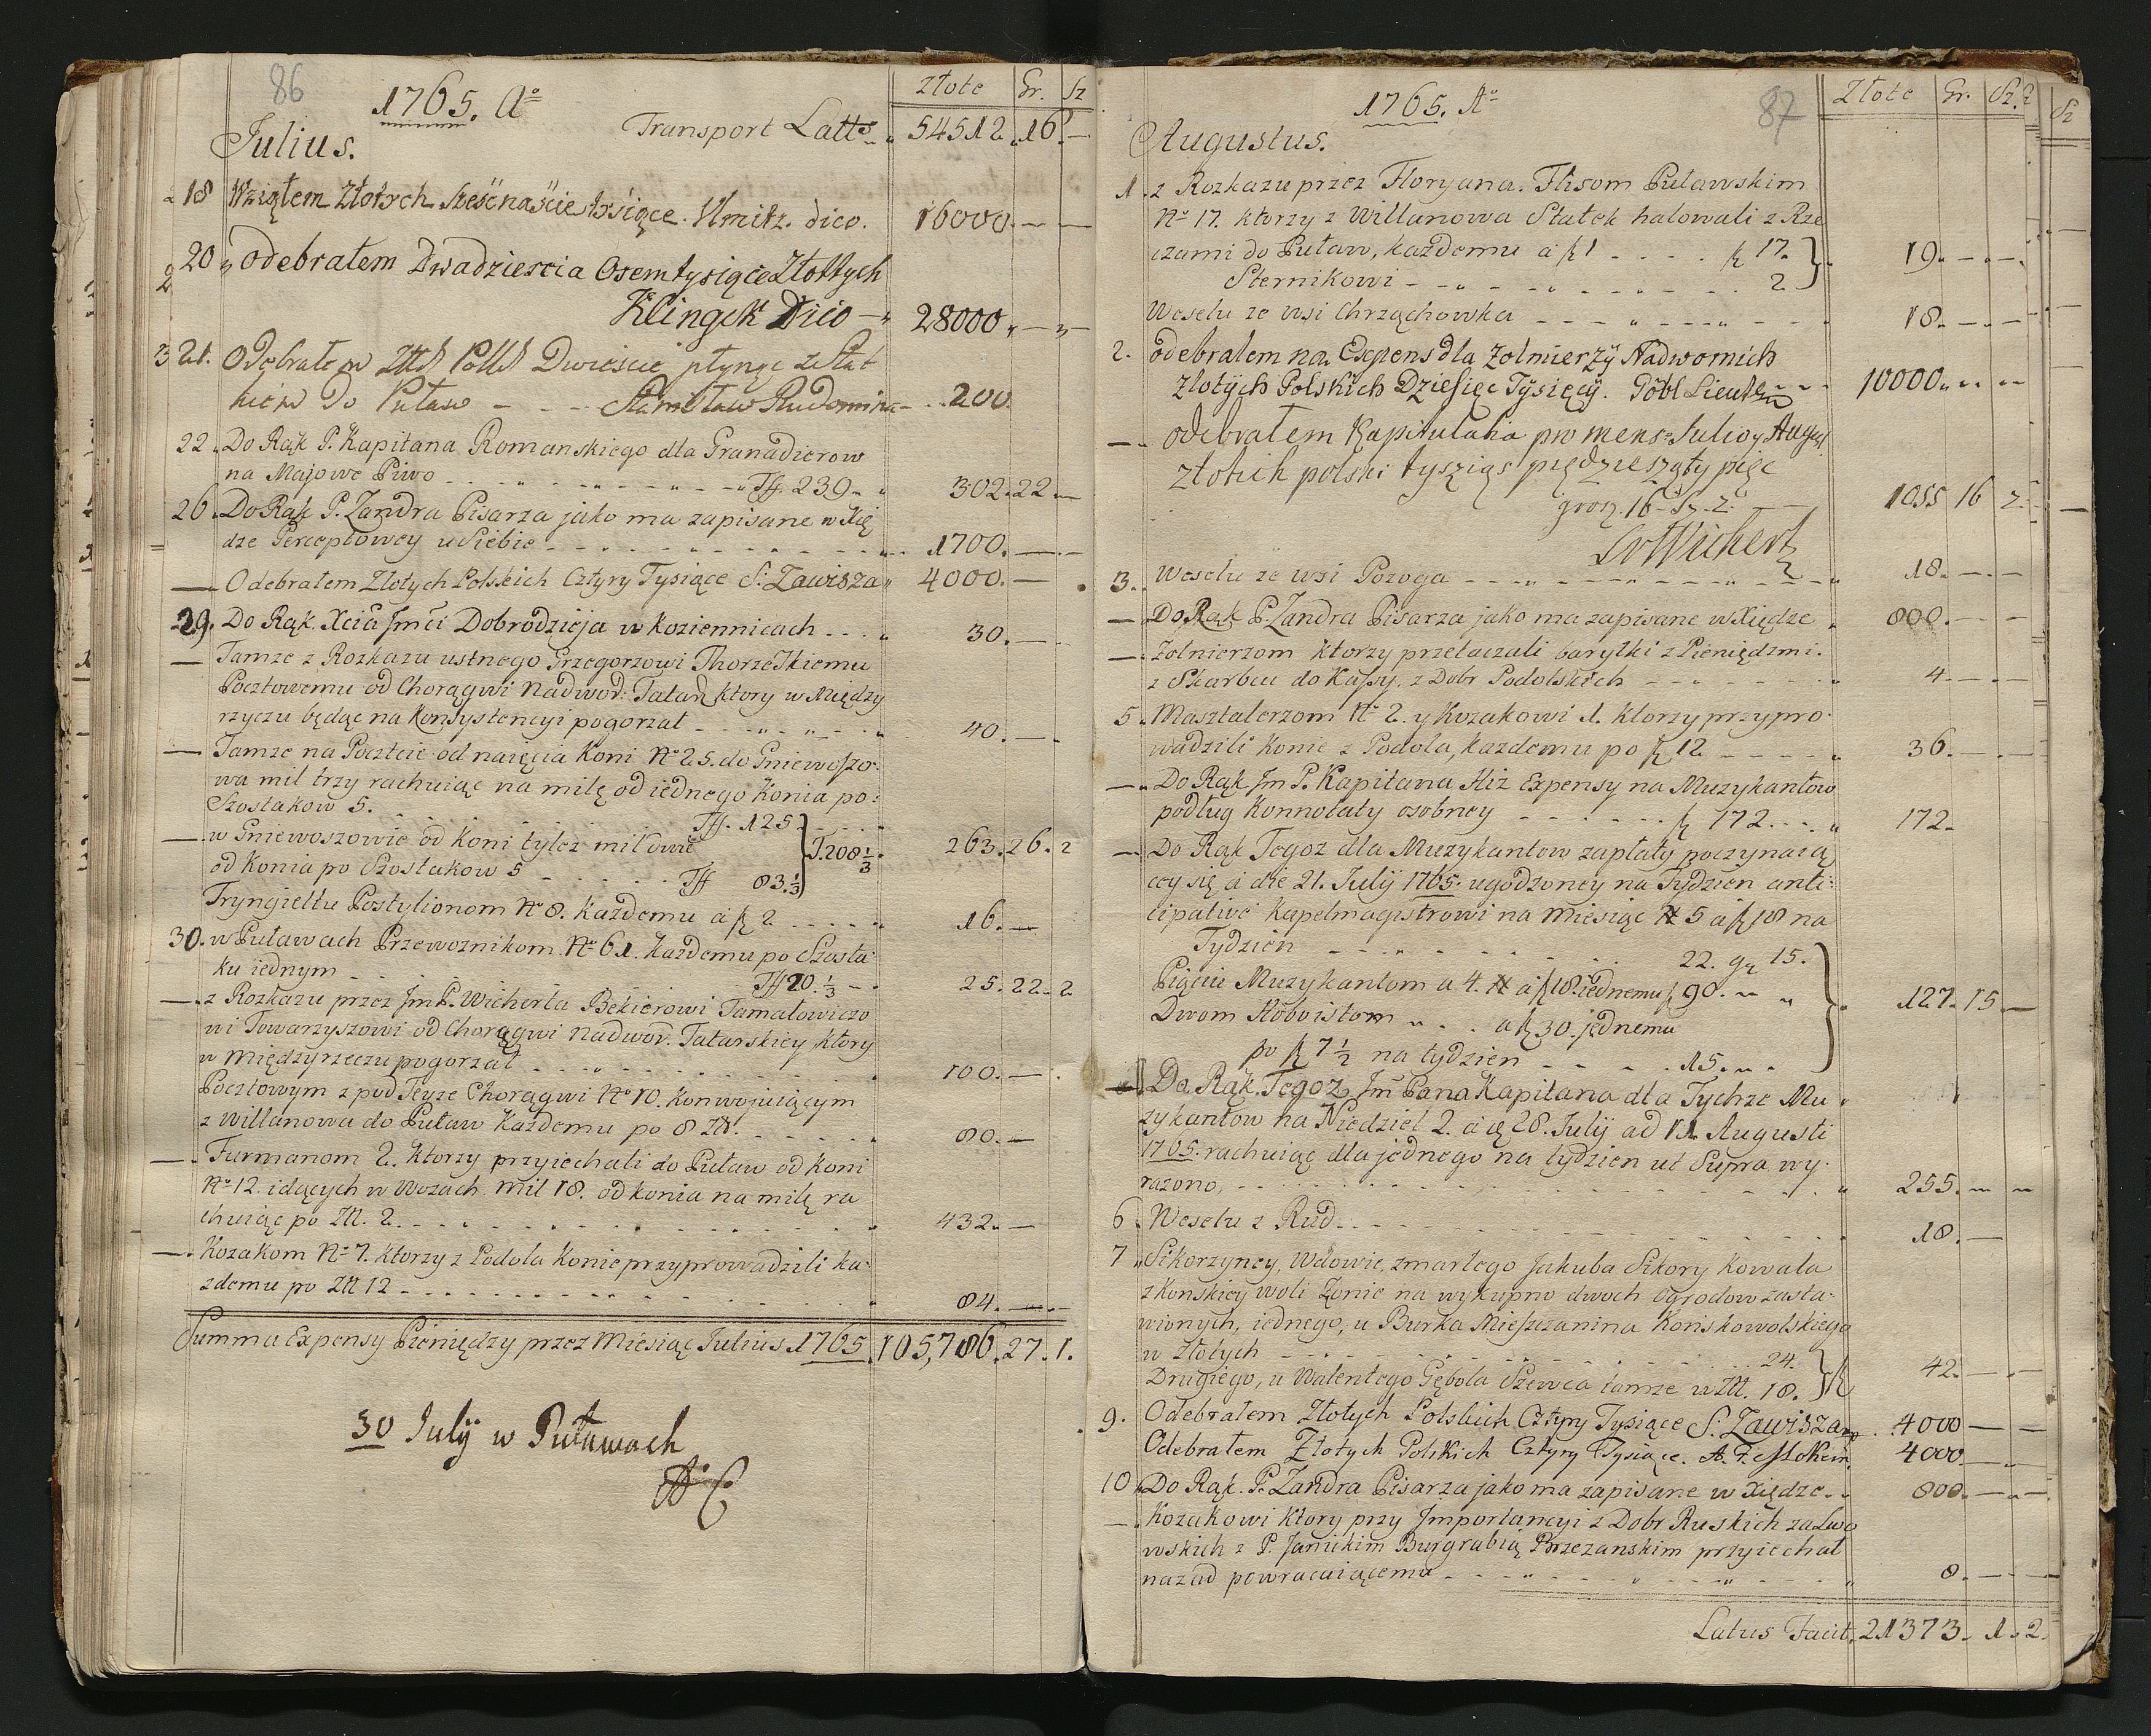 86
1765. Aº
Złote Gr. Sz
Transport Latto 54512. 16. —
Julius.
18 Wziąłem Złotych Sześćnaście tysięce. dico. 16000. — —
20 odebrałem Dwadziescia Osem tysięce Złottych
Klingek Dico — 28000 „ — „ —
21. Odebrałem Dwiescie płynąc ze Stat
kiem do Puław — - - Stanisław Rudomina - - 200.
22. Do Rąk P. Kapitana Romanskiego dla Granadierow
na Majowe Piwo - - - - Tff. 239 - 302. 22. —
26. Do Rąk P. Zandra Pisarza jako ma zapisane w Xię
dze Perceptowey u Siebie - - - - 1700. — . —
— Odebrałem Złotych Polskich Cztyry Tysiące S: Zawisza 4000. —
29. Do Rąk. Xcia Jmci Dobrodzieja w Koziennicach - - - 30. —
— Tamze z Rozkazu ustnego Grzegorzowi Thorzeskiemu
Pocztowemu od Chorągwi Nadwor: Tatar: ktory w Między
rzyczu będąc na Konsystencyi pogorzał - - - - 40. — .
— Tamze na Poczcie od naięcia Koni Nº 25. do Gniewoszo:
wa mil trzy rachuiąc na milę od iednego Konia po:
Szostakow 5. - - - - Tff. 125.
— w Gniewoszowie od Koni tylez mil dwie T. 208 1/3. 263. 26. 2
od Konia po Szostakow 5 - - - - Tff 83. 1/3
Tryngieltu Postylionom Nº 8. Każdemu á f 2 - - - - 16. —
30. w Puławach Przewoznikom. Nº 61. Każdemu po Szosta:
ku iednym - - - - Tff 20. 1/3 - - 25. 22. 2
—. z Rozkazu przez Jm P. Wicherta Bekierowi Tamatowiczo
wi Towarzyszowi od Chorągwi Nadwor. Tatarskiey, ktory
w Międzyrzeczu pogorzał - - - - 100. — .
Pocztowym z pod Teyze Chorągwi Nº 10. Konwojuiącym
z Willanowa do Puław Każdemu po 8 Zł. - - - - 80. —
—. Furmanom 2. Ktorzy przyiechali do Puław od Koni
Nº 12. idących w Wozach mil 18. od konia na milę ra
chuiąc po Zł. 2. - - - - 432. —
—. Kozakom Nº 7. ktorzy z Podola Konie przyprowadzili ka:
zdemu po Zł 12 - - - - 84. — . —
Summa Expensy Pieniędzy przez Miesiąc Julius. 1765. 105,786. 27. 1.
30 July w Puławach
87
1765. Aº
Złote Gr. Sz.
Augustus.
1. z Rozkazu przez Floryana. Flisom Puławskim
Nº 17. ktorzy z Willanowa Statek halowali z Rze
czami do Puław, każdemu á f 1 - - - - f 17. 19. — . — .
Sternikowi - - - - 2
Weselu ze wsi Chrząchowka - - - - 18. — . —
2. odebrałem na Expens dla Zołnierzÿ Nadwornich
Złotÿch Polskich Dziesięc Tÿsięcÿ. Göbl Lieut - - 10000 „ - - - -
— odebrałem Kapitulatia pro mens: Julio y Augus
złotich polski tysziąs piędziesząty pięc
grosz. 16 - Sz - 2. 1055 16 2.
Wichert
3. Weselu ze wsi Pozoga - - - - 18. — . —
— Do Rąk P. Zandra Pisarza jako ma zapisane w Xiędze 800. — . —
—. Zołnierzom ktorzy przetaczali baryłki z Pieniędzmi.
z Skarbcu do Kassy. z Dobr Podolskich - - - - 4. — . —
5. Masztalerzom Nº 2. y Kozakowi 1. ktorzy przypro:
wadzili Konie z Podola, Kazdemu po f 12 - - - - 36. — . —
—. Do Rąk Jm P. Kapitana Hiz Expensy na Muzykantow
podług Konnotaty osobney - - - - f 172. - - - 172.
—. Do Rąk Tegoz dla Muzykantow zapłaty poczynaią
cey się á die 21. Julij 1765. ugodzoney na Tydzien anti:
cipative Kapelmagistrowi na miesiąc # 5 á f 18 na
Tydzien - - - - 22. gr 15.
Pięciu Muzykantom á 4. # á f 18. iednemu f 90. — „ 127. 15. —
Dwom Hoboistom - - á f 30. jednemu
po f 7 1/2 na tydzien - - - - 15. — .
Do Rąk. Tegoz Jm Pana Kapitana dla Tychze Mu
zykantow na Niedziel 2. á 28. Julij ad 11. Augusti
1765. rachuiąc dla jednego na tydzien ut Supra wy:
razono, - - - - 255. — —
6. Weselu z Rud - - - - 18. —
7. Sikorzyney, Wdowie, zmarłego Jakuba Sikory Kowala
z Konskiey woli Zonie na wykupno dwoch Ogrodow zasta:
wionych, iednego, u Burka Mieszczanina Konskowolskiego
w Złotych - - - - 24.
Drugiego, u Walentego Gębola Szewca tamze w Zł. 18. 42. — . —
9. Odebrałem Złotych Polskich Cztyry Tysiące S: Zawisza 4000 — —
Odebrałem Złotych Polskich Cztyry Tysiące. A. F. 4000. — —
10. Do Rąk. P. Zandra Pisarza jako ma zapisane w Xiędze - - 800. — . —
—. Kozakowi ktory przy Jmportancyi z Dobr Ruskich zaLwo
wskich z P. Janickim Burgrabią Brzezanskim przyiechał
nazad powracaiącemu - - - - 8. — . —
Latus Facit. 21373. 1. 2.